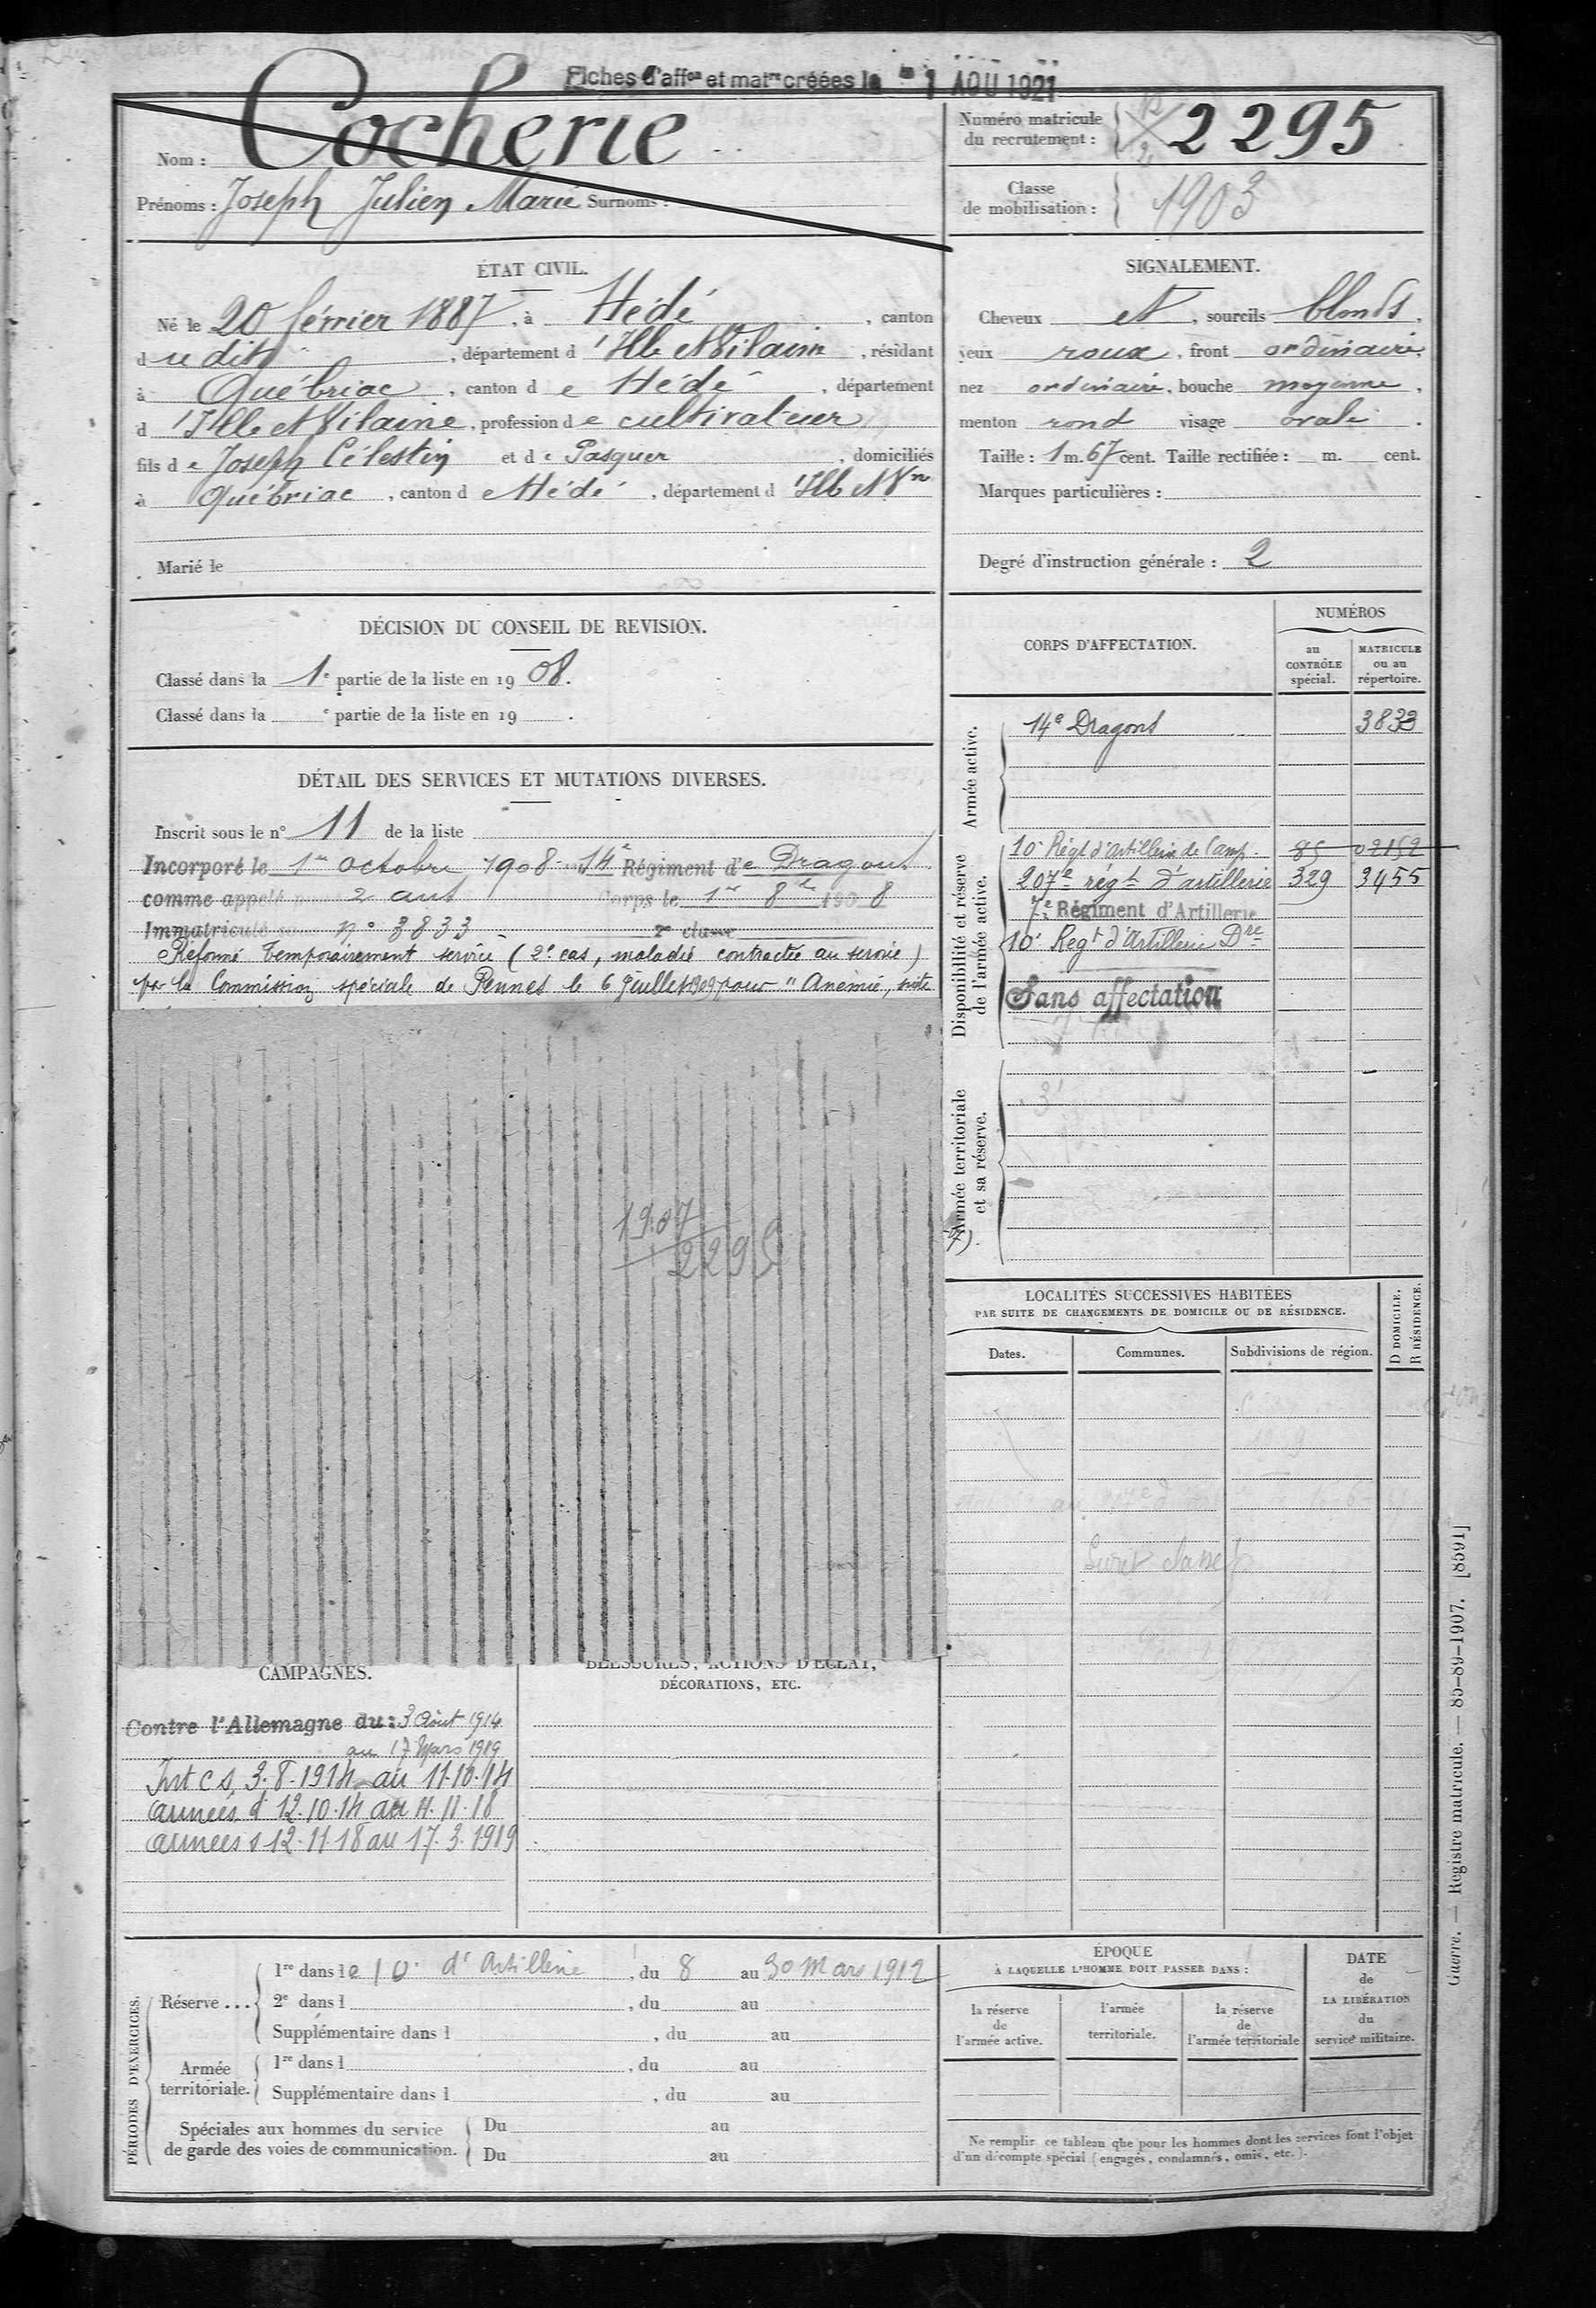 Fiches d'affon et matre créées le 1 AOU 1921
Nom : Cocherie
Prénoms : Joseph Julien Marie Surnoms :
Numéro matricule
du recrutement : 2295
Classe
de mobilisation : 1903
ÉTAT CIVIL.
Né le 20 février 1887, à Hédé, canton
du dit, département d'Ille et Vilaine, résidant
à Québriac, canton de Hédé, département
d'Ille et Vilaine, profession de cultivateur
fils de Joseph Célestin et de Pasquer, domiciliés
à Québriac, canton de Hédé, département d'Ille et Vne
Marié le
SIGNALEMENT.
Cheveux et, sourcils blonds,
yeux roux, front ordinaire,
nez ordinaire, bouche moyenne,
menton rond visage ovale.
Taille : 1 m. 67 cent. Taille rectifiée : m. cent.
Marques particulières :
Degré d'instruction générale : 2
DÉCISION DU CONSEIL DE REVISION.
Classé dans la 1e partie de la liste en 1908.
Classé dans la e partie de la liste en 19 .
DÉTAIL DES SERVICES ET MUTATIONS DIVERSES.
Inscrit sous le n° 11 de la liste
Incorporé le 1er octobre 1908 14e Régiment de Dragons
comme appelé 2 ans Corps le 1er 8bre 1908
Immatriculé sous n° 3833 2e classe
Réformé temporairement service (2e cas, maladie contractée au service)
par la Commission spéciale de Rennes le 6 juillet 1909 pour "Anémie, suite
1907
2295
CORPS D'AFFECTATION.
NUMÉROS
au
CONTRÔLE
spécial.
MATRICULE
ou au
répertoire.
Armée active.
14e Dragons 3833
Disponibilité et réserve
de l'armée active.
10e Régt d'Artillerie de Camp. 85 02152
207e régt d'artillerie 329 3455
7e Régiment d'Artillerie
10e Regt d'Artillerie Dre
Sans affectation
Armée territoriale
et sa réserve.
LOCALITÉS SUCCESSIVES HABITÉES
PAR SUITE DE CHANGEMENTS DE DOMICILE OU DE RÉSIDENCE.
D DOMICILE.
R RÉSIDENCE.
Dates. Communes. Subdivisions de région.
CAMPAGNES.
Contre l'Allemagne du : 3 Août 1914
au 17 Mars 1919
Int C S, 3.8.1914 au 11.10.14
Armées d 12.10.14 au 11.11.18
Armées s 12.11.18 au 17.3.1919
BLESSURES, ACTIONS D'ÉCLAT,
DÉCORATIONS, ETC.
PÉRIODES D'EXERCICES.
Réserve ...
1re dans le 10e d'Artillerie, du 8 au 30 Mars 1912
2e dans l , du au
Supplémentaire dans l , du au
Armée
territoriale.
1re dans l , du au
Supplémentaire dans l , du au
Spéciales aux hommes du service
de garde des voies de communication.
Du au
Du au
ÉPOQUE
À LAQUELLE L'HOMME DOIT PASSER DANS :
la réserve
de
l'armée active.
l'armée
territoriale.
la réserve
de
l'armée territoriale
DATE
de
LA LIBÉRATION
du
service militaire.
Ne remplir ce tableau que pour les hommes dont les services font l'objet
d'un décompte spécial (engagés, condamnés, omis, etc.).
Guerre. — Registre matricule. — 85-89-1907. [8591]